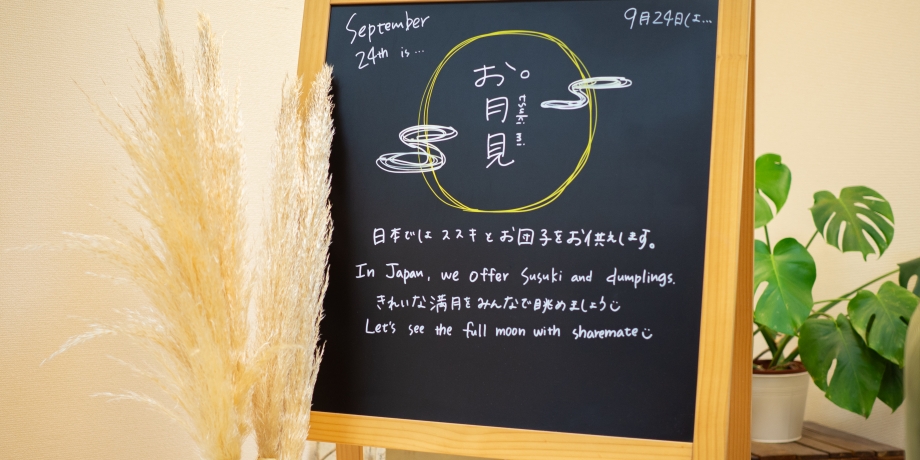 September
24th is...
9月24日は...
お月見
tsuki mi
日本ではススキとお団子をお供えします。
In Japan, we offer Susuki and dumplings.
きれいな満月をみんなで眺めましょう
Let's see the full moon with sharemate